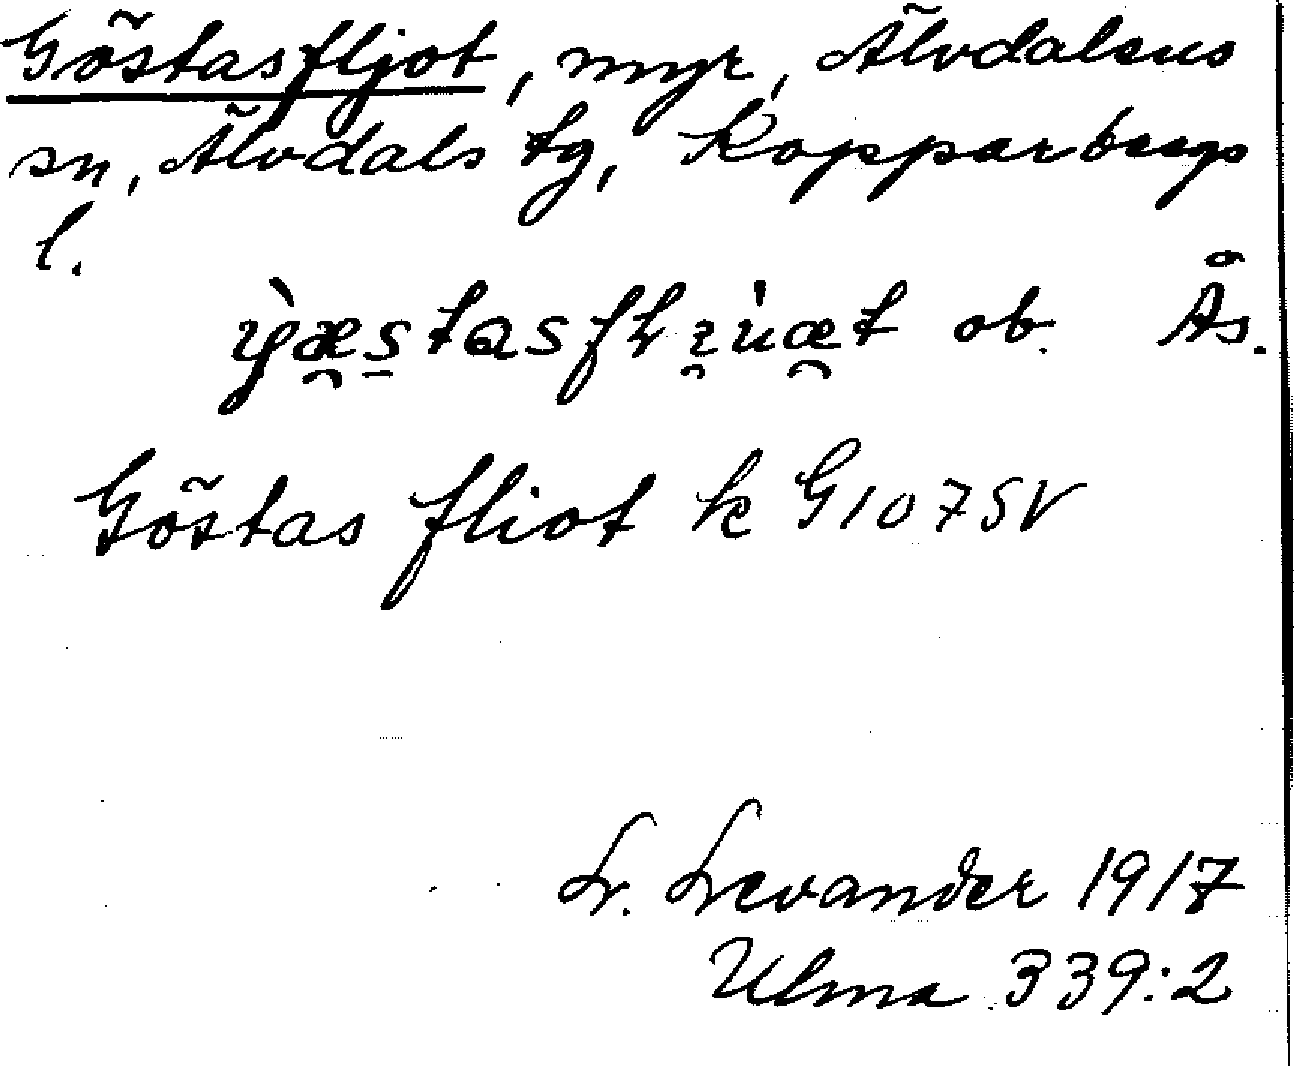 Göstasfljot, myr, Älvdalens
sn, Älvdals tg, Kopparbergs
l.
ob. Ås.
Göstas fliot k G1075V
L. Levander 1917
Ulma 339:2